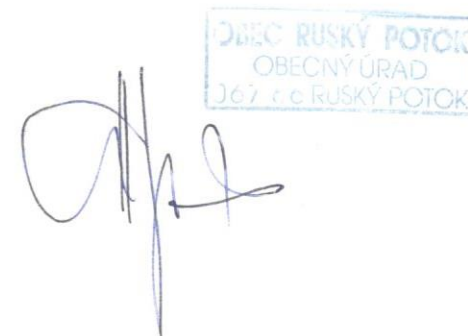 OBEC RUSKÝ POTOK
OBECNÝ ÚRAD
RUSKÝ POTOK